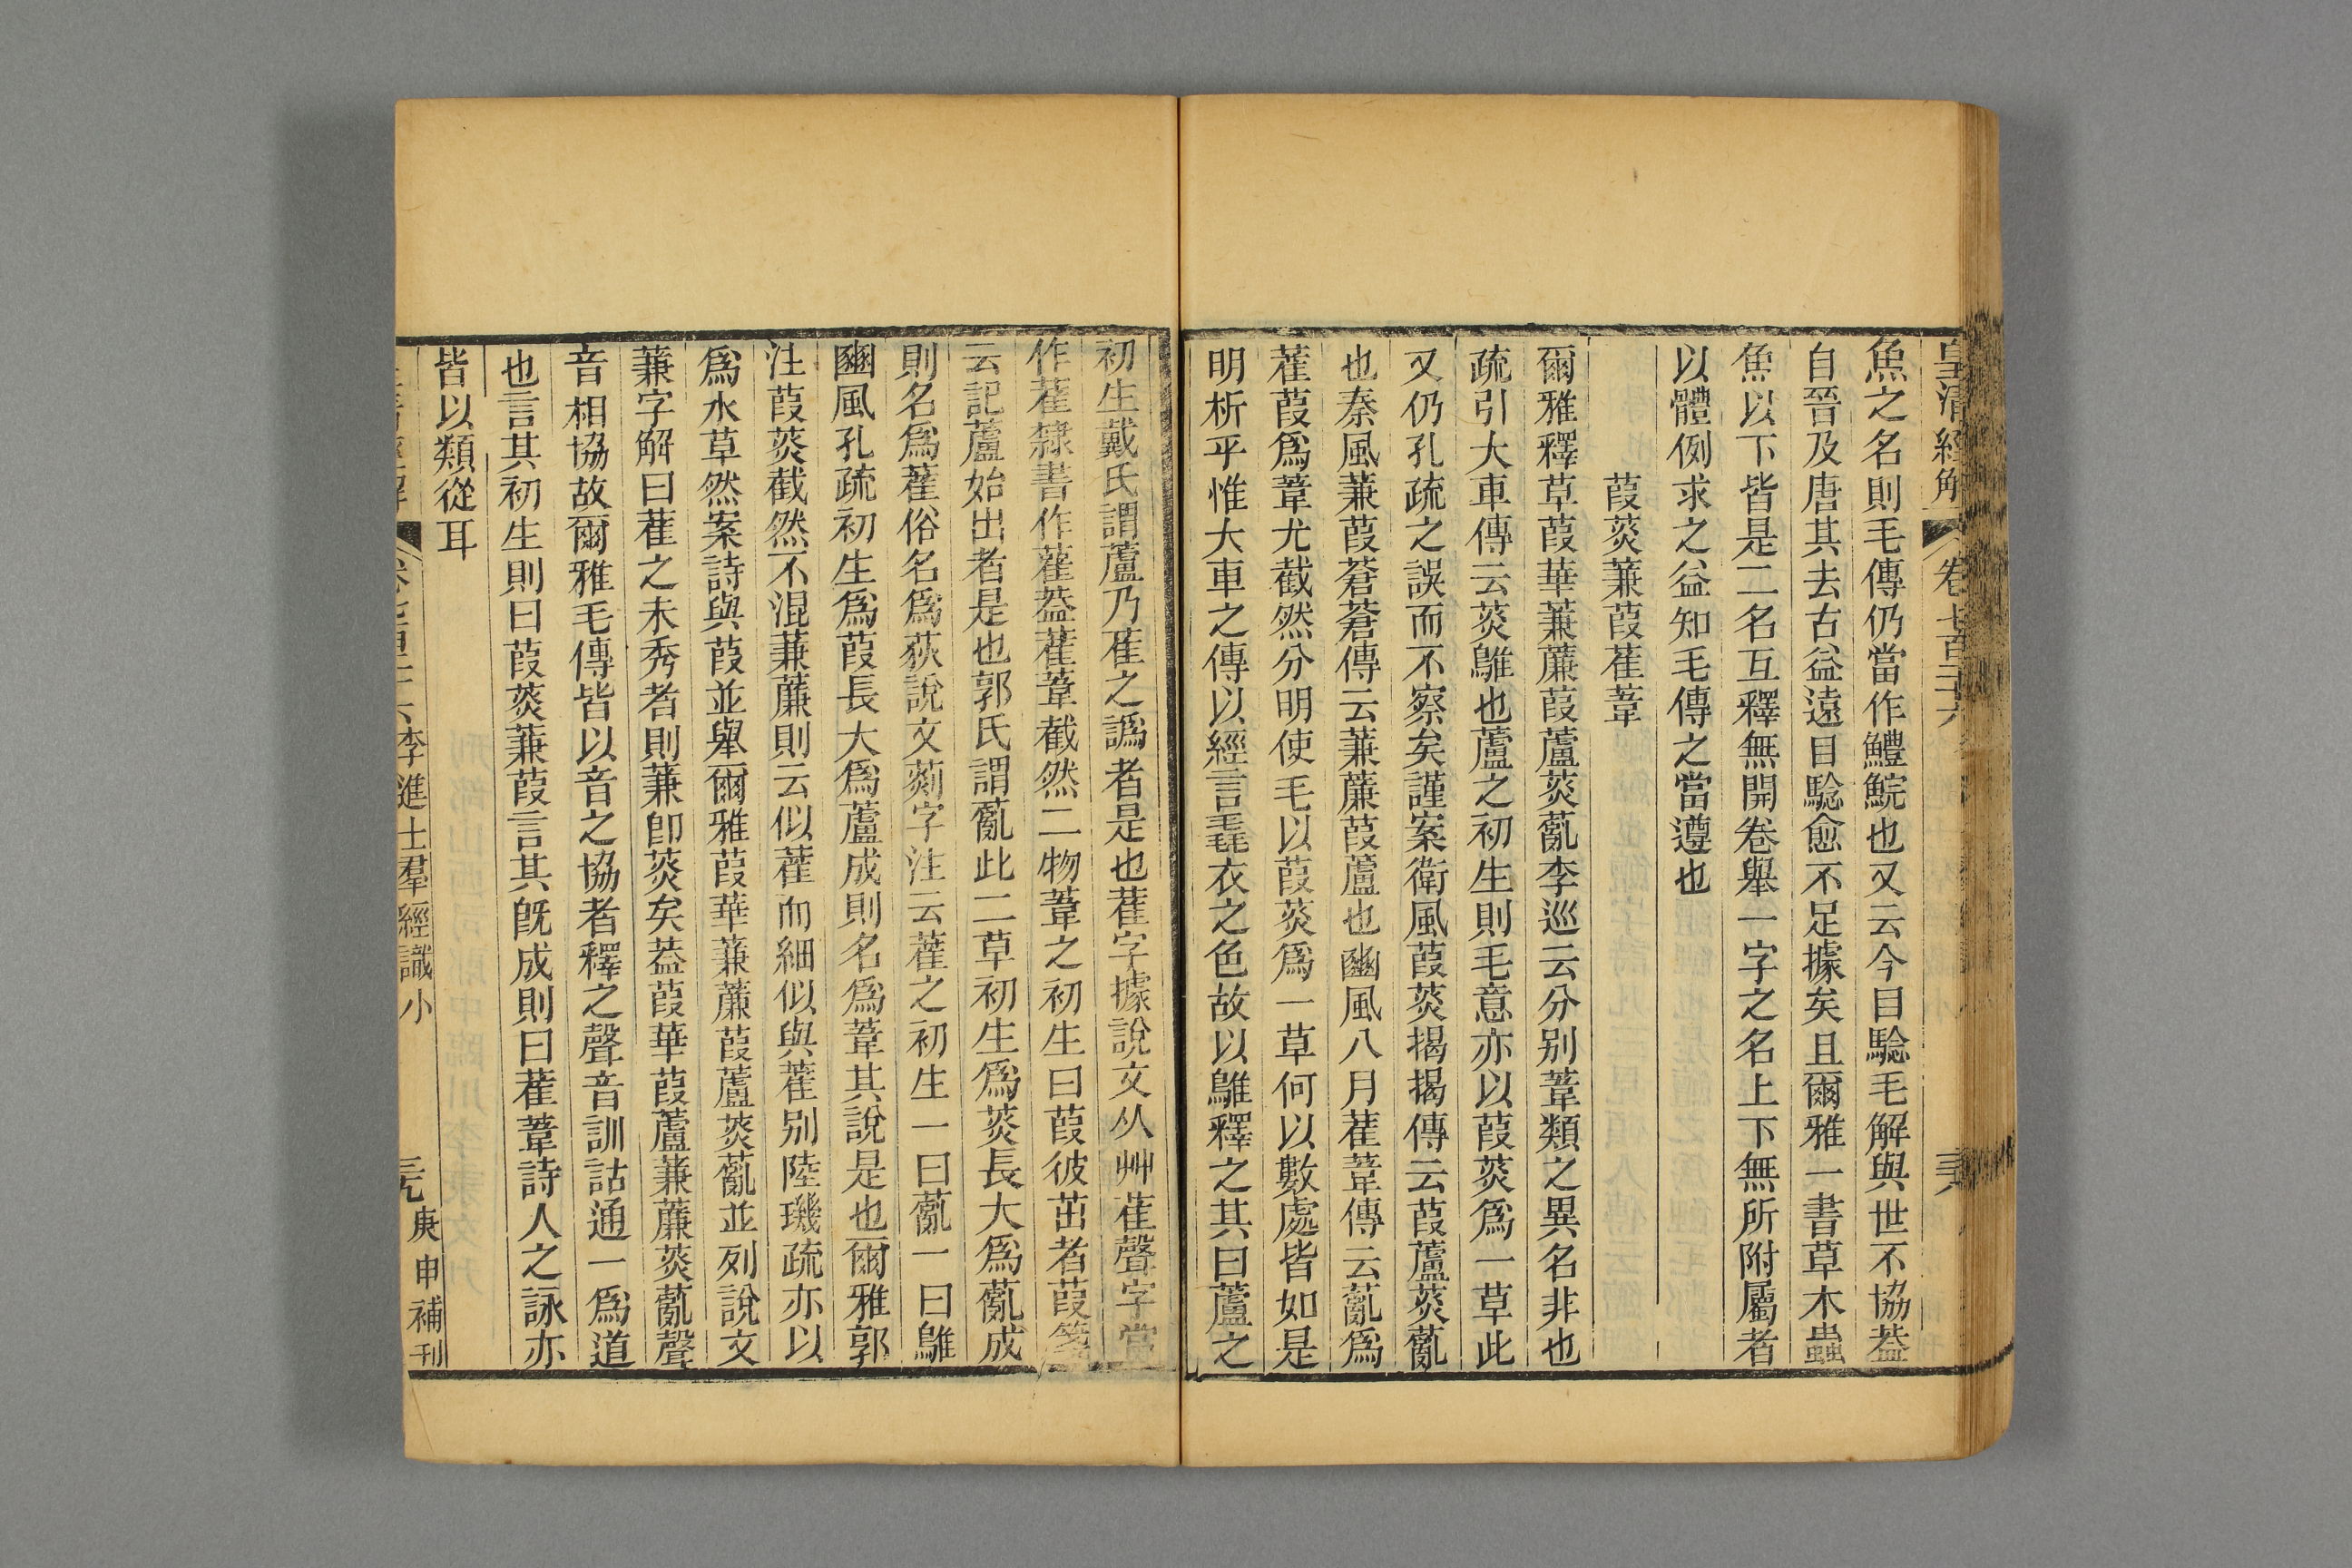 皇清經解 卷七百二十六
魚之名則毛傳仍當作鱧鯇也又云今目驗毛解與世不協葢
自晉及唐其去古益遠目驗愈不足據矣且爾雅一書草木蟲
魚以下皆是二名互釋無開卷舉一字之名上下無所附屬者
以體例求之益知毛傳之當遵也
葭菼蒹葭萑葦
爾雅釋草葭華蒹薕葭蘆菼薍李巡云分别葦類之異名非也
疏引大車傳云菼鵻也蘆之初生則毛意亦以葭菼爲一草此
又仍孔疏之誤而不察矣謹案衛風葭菼揭揭傳云葭蘆菼薍
也秦風蒹葭蒼蒼傳云蒹薕葭蘆也豳風八月萑葦傳云薍爲
萑葭爲葦尤截然分明使毛以葭菼爲一草何以數處皆如是
明析乎惟大車之傳以經言毳衣之色故以鵻釋之其曰蘆之
初生戴氏謂蘆乃萑之譌者是也萑字據說文从艸萑聲字當
作雚隸書作萑葢萑葦截然二物葦之初生曰葭彼茁者葭箋
云記蘆始出者是也郭氏謂薍此二草初生爲菼長大爲薍成
則名爲萑俗名爲荻說文薍字注云萑之初生一曰薍一曰鵻
豳風孔疏初生爲葭長大爲蘆成則名爲葦其說是也爾雅郭
注葭菼截然不混蒹薕則云似萑而細似與萑别陸璣疏亦以
爲水草然案詩與葭並舉爾雅葭華蒹薕葭蘆菼薍並列說文
蒹字解曰萑之未秀者則蒹卽菼矣葢葭華葭蘆蒹薕菼薍聲
音相協故爾雅毛傳皆以音之協者釋之聲音訓詁通一爲道
也言其初生則曰葭菼蒹葭言其旣成則曰萑葦詩人之詠亦
皆以類從耳
李進士羣經識小 庚申補刊